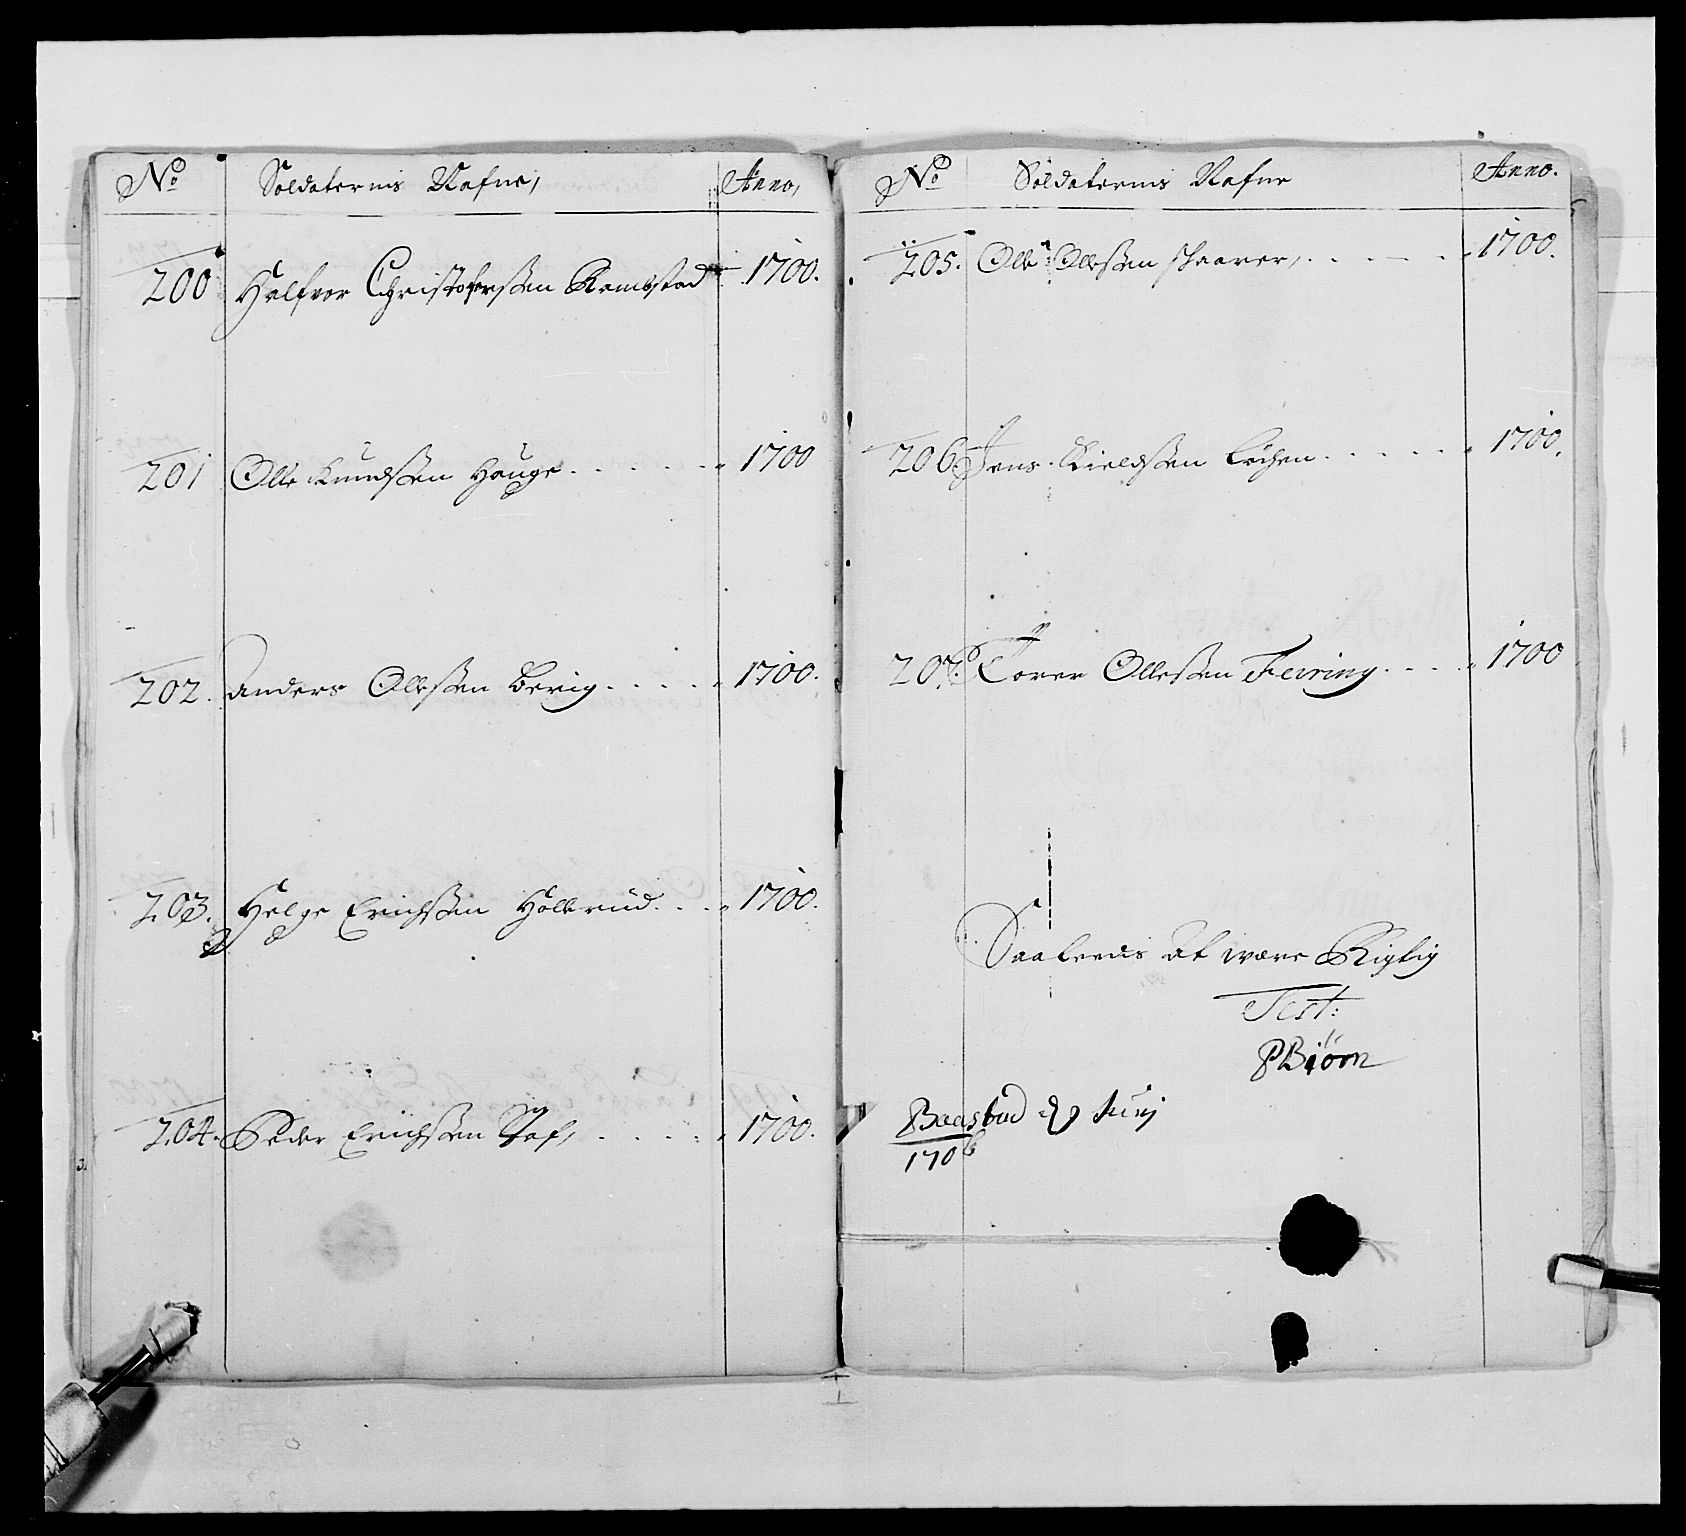 No Soldaternis Nafne, Anno,
200 Halfvor Christofersen Rambstad 1700.
201 Olle Knudssen Hauge. . . . . . . 1700
202. Anders Ollessen Berig . . . . . 1700.
203. Helge Erichssen Hollerud. . . . 1700.
204. Peder Erichssen . . . . . 1700.
No Soldaternis Nafne Anno.
205. Olle Ollessen Skaarer, . . . . . . 1700.
206. Jens Kieldssen Løchen . . . . . . 1700.
207. Torer Ollessen Feiring . . . . 1700
Saaledis at være Rigtig
Test:
PBiörn
Baastad d Junj
1706